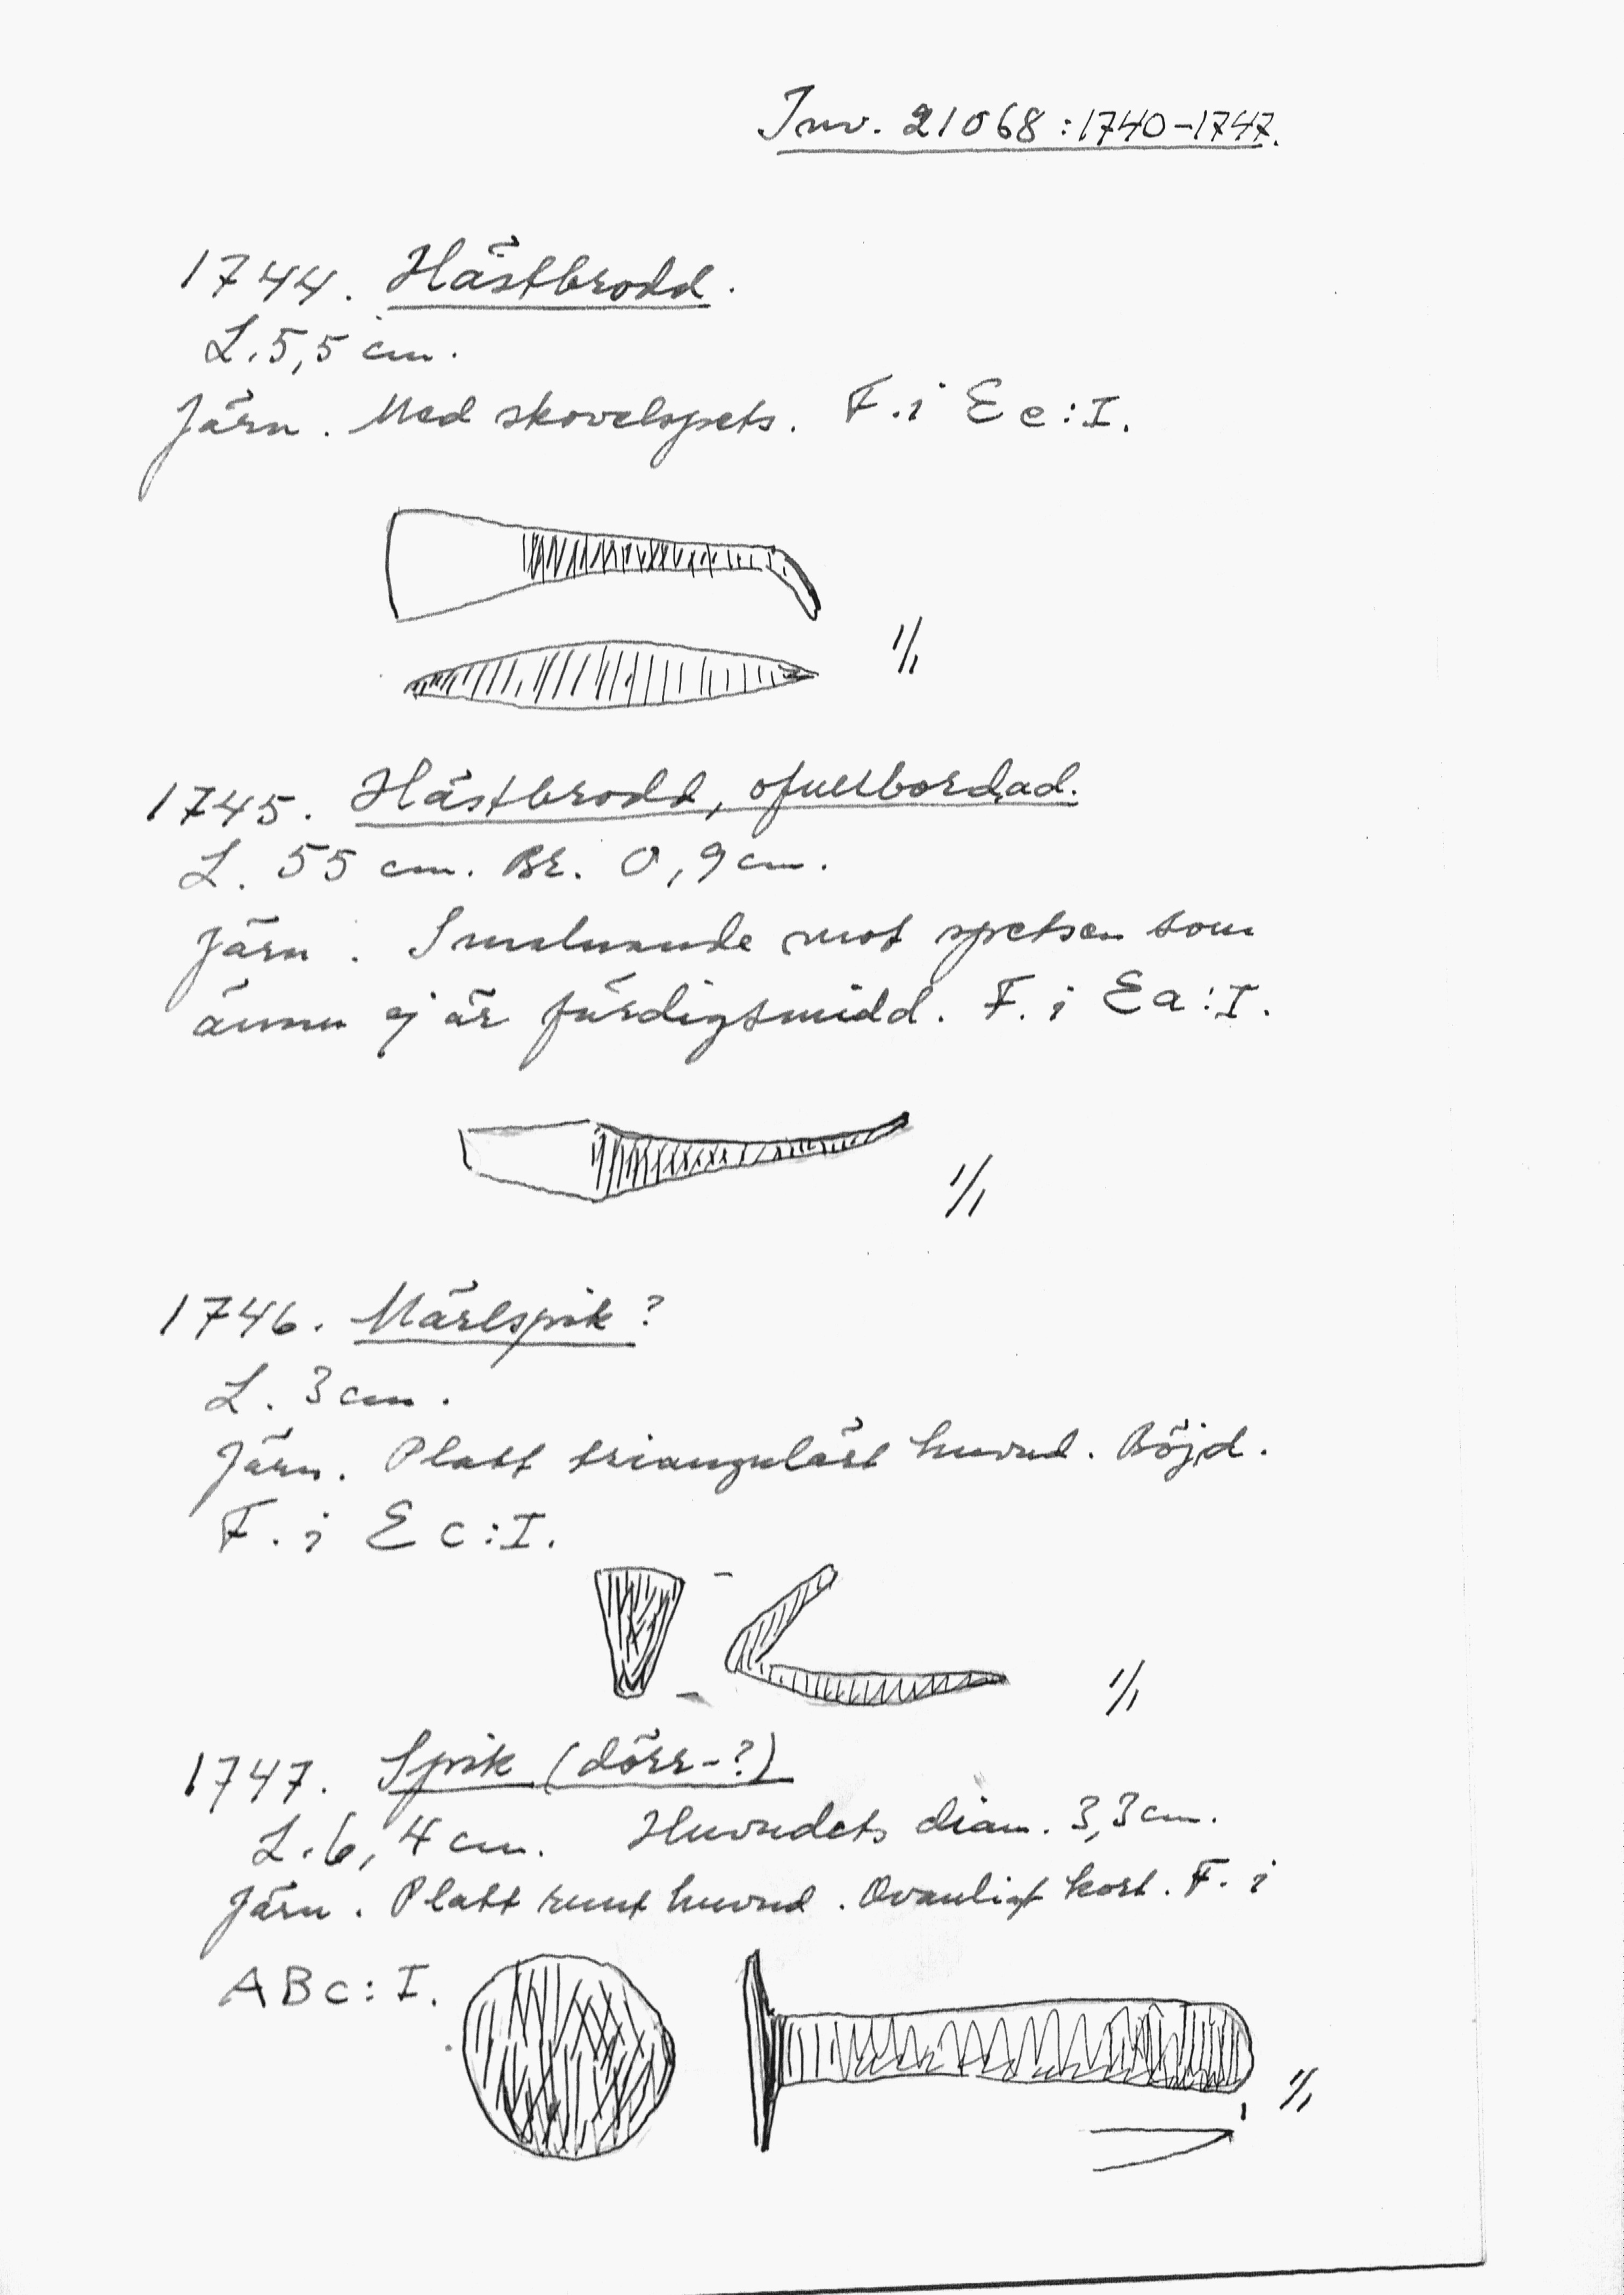 Inv. 21068:1740-1747.
1744. Hästbrodd.
L. 5,5 cm.
Järn. Med skovelspets. F. i Ee:I.
1/1
1745. Hästbrodd, ofullbordad.
L. 55 cm. Br. 0,9 cm.
Järn. Smalnande mot spetsen som
ännu ej är färdigsmidd. F. i Ea:I.
1/1
1746. Märlspik?
L. 3 cm.
Järn. Platt triangulärt huvud. Böjd.
F. i Ec:I.
1/1
1747. Spik (dörr-?)
L. 6,4 cm. Huvudets diam. 3,3 cm.
Järn. Platt runt huvud. Ovanligt kort. F. i
ABc:I.
1/1